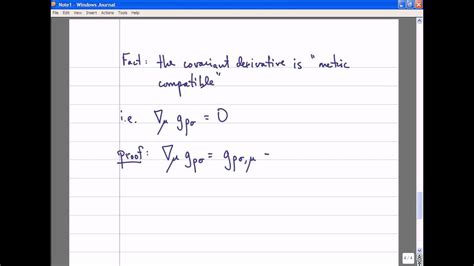 Note1 - Windows Journal
File Edit View Insert Actions Tools Help
Fact: the covariant derivative is "metric
compatible"
i.e. ∇μ gρσ = 0
proof: ∇μ gρσ = gρσ,μ -
4 / 4